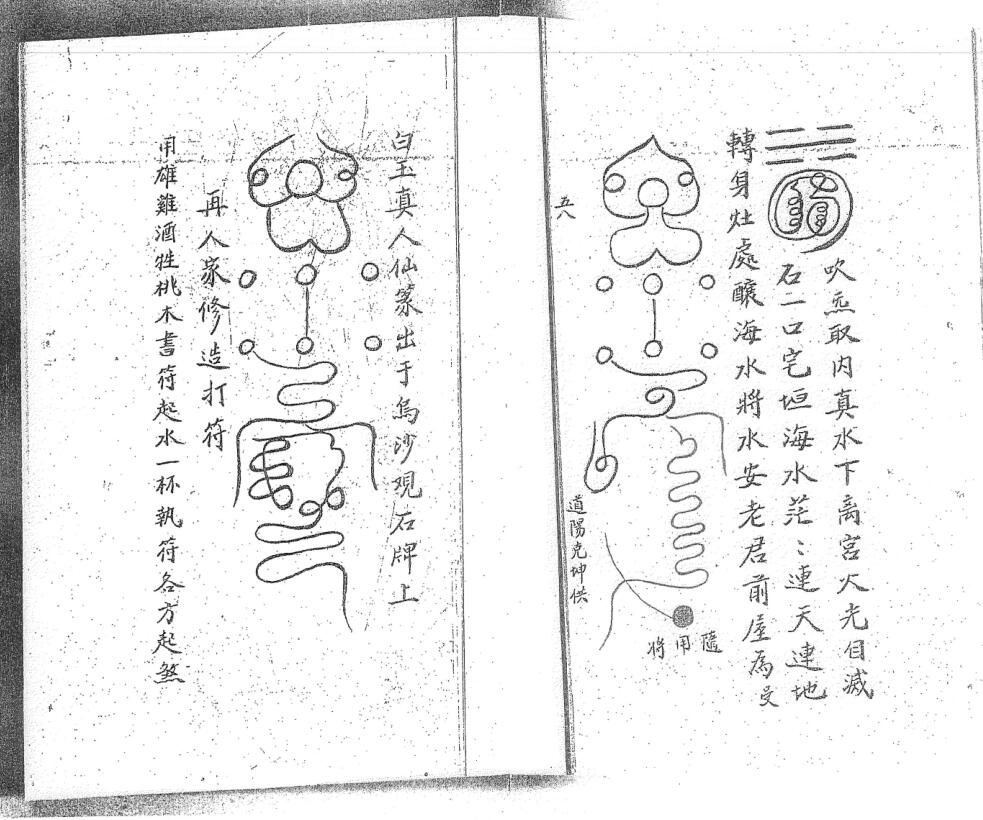 吹炁取内真水下离宮火光自滅
石二口宅垣海水茫〻連天連地
轉身灶處釀海水將水安老君前屋為受
隨用將
五八
道陽克坤供
白玉真人仙篆出于烏沙观石牌上
再人家修造打符
用雄雞酒牲桃木書符起水一杯執符各方起煞